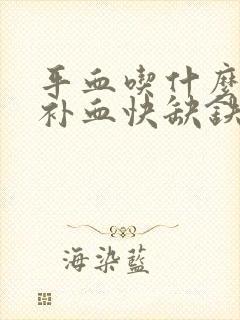 平血喫什麼
补血快缺鉄
海染藍